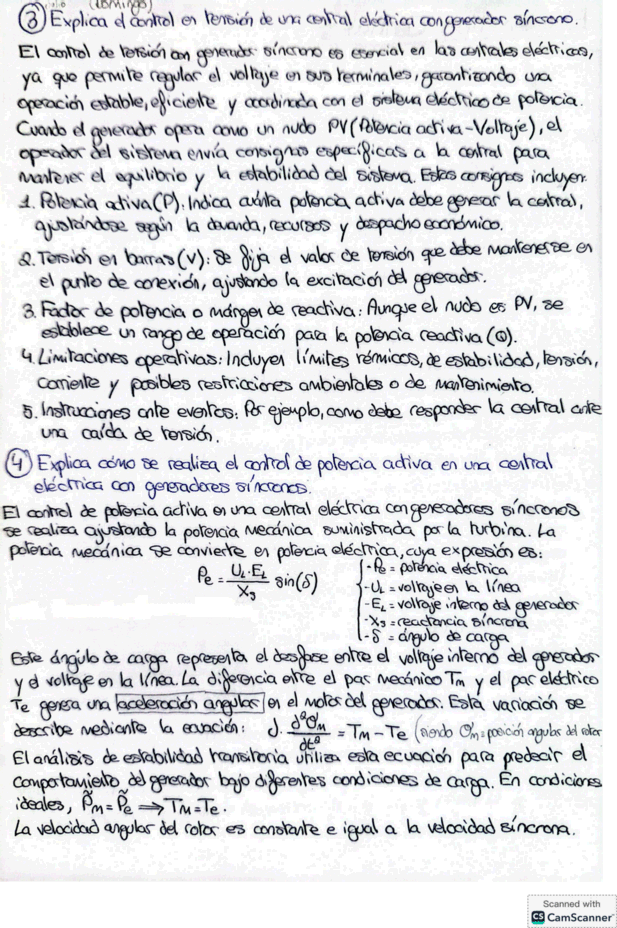 (domingo)
③ Explica el control en tensión de una central eléctrica con generador síncrono.
El control de tensión con generador síncrono es esencial en las centrales eléctricas,
ya que permite regular el voltaje en sus terminales, garantizando una
operación estable, eficiente y coordinada con el sistema eléctrico de potencia.
Cuando el generador opera como un nudo PV (Potencia activa-Voltaje), el
operador del sistema envía consignas específicas a la central para
mantener el equilibrio y la estabilidad del sistema. Estas consignas incluyen:
1. Potencia activa (P): Indica cuánta potencia activa debe generar la central,
ajustándose según la demanda, recursos y despacho económico.
2. Tensión en barras (V): Se fija el valor de tensión que debe mantenerse en
el punto de conexión, ajustando la excitación del generador.
3. Factor de potencia o márgen de reactiva: Aunque el nudo es PV, se
establece un rango de operación para la potencia reactiva (Q).
4. Limitaciones operativas: Incluyen límites térmicos, de estabilidad, tensión,
corriente y posibles restricciones ambientales o de mantenimiento.
5. Instrucciones ante eventos: Por ejemplo, como debe responder la central ante
una caída de tensión.
④ Explica cómo se realiza el control de potencia activa en una central
eléctrica con generadores síncronos.
El control de potencia activa en una central eléctrica con generadores síncronos
se realiza ajustando la potencia mecánica suministrada por la turbina. La
potencia mecánica se convierte en potencia eléctrica, cuya expresión es:
Pe = UL · EL / Xs sin(δ)
- Pe = potencia eléctrica
- UL = voltaje en la línea
- EL = voltaje interno del generador
- Xs = reactancia síncrona
- δ = ángulo de carga
Este ángulo de carga representa el desfase entre el voltaje interno del generador
y el voltaje en la línea. La diferencia entre el par mecánico Tm y el par eléctrico
Te genera una aceleración angular en el motor del generador. Esta variación se
describe mediante la ecuación: J · d²θm / dt² = Tm - Te (siendo θm = posición angular del rotor
El análisis de estabilidad transitoria utiliza esta ecuación para predecir el
comportamiento del generador bajo diferentes condiciones de carga. En condiciones
ideales, P̃m = P̃e ⟹ Tm = Te.
La velocidad angular del rotor es constante e igual a la velocidad síncrona.
Scanned with
CS CamScanner